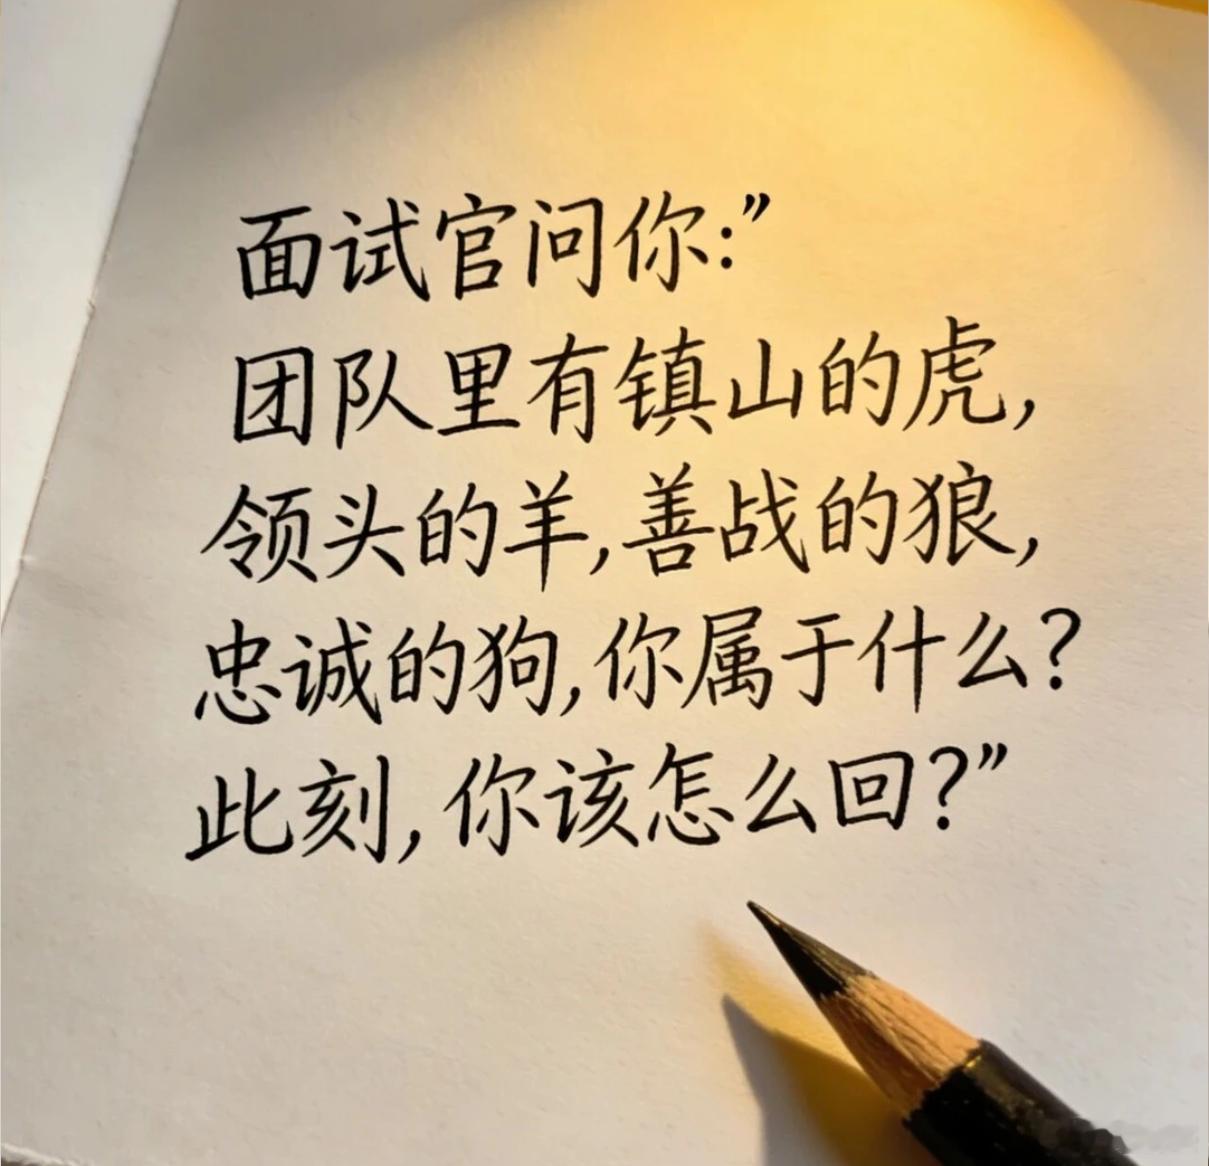 面试官问你:”
团队里有镇山的虎,
领头的羊,善战的狼,
忠诚的狗,你属于什么?
此刻,你该怎么回?”